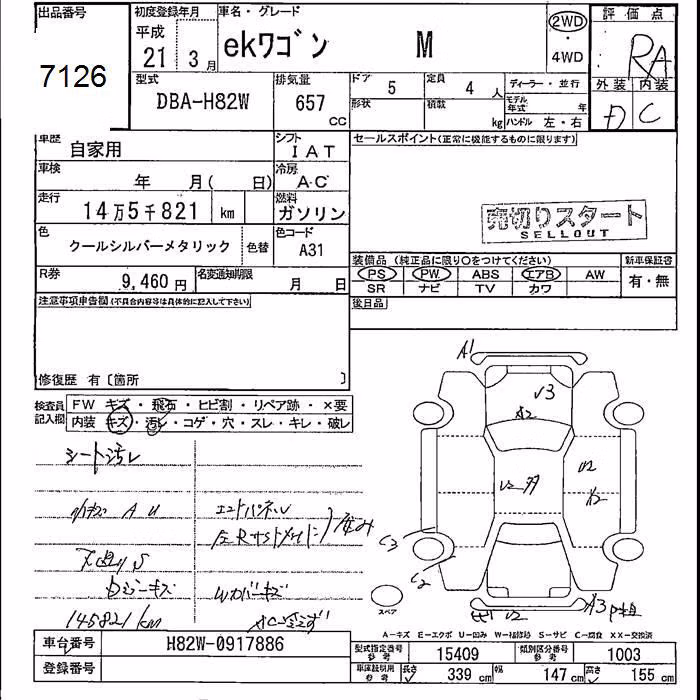 出品番号
7126
初度登録年月
平成
21 3月
車名・グレード
ekワゴン M
2WD
・
4WD
評価点
RA
外装 内装
D C
型式
DBA-H82W
排気量
657
CC
ドア
5
定員
4 人
ディーラー・並行
形状
積載
kg
モデル年式 年
ハンドル 左・右
車歴
自家用
シフト
IAT
セールスポイント(正常に機能するものに限ります)
車検
年 月( 日)
冷房
A・C
走行
14万5千821 km
燃料
ガソリン
売切りスタート
SELLOUT
色
クールシルバーメタリック
色替
色コード
A31
R券
9,460円
名変通知期限
月 日
装備品 (純正品に限り○をつけてください)
PS PW ABS エアB AW
SR ナビ TV カワ
新車保証書
有・無
後日品
注意事項申告欄(不具合内容等は具体的に記入して下さい)
修復歴 有〔箇所 〕
検査員記入欄
FW キズ・飛石・ヒビ割・リペア跡・×要
内装 キズ・汚レ・コゲ・穴・スレ・キレ・破レ
シート汚レ
A U
145821km
A1
U3
A2
U2
A2
C3
C2
U2
A3
スペア
A-キズ E-エクボ U-凹み W-補修跡 S-サビ C-腐食 XX-交換済
車台番号
H82W-0917886
登録番号
型式指定番号 参考
15409
類別区分番号 参考
1003
車庫証明用 参考
長さ 339 cm
幅 147 cm
高さ 155 cm